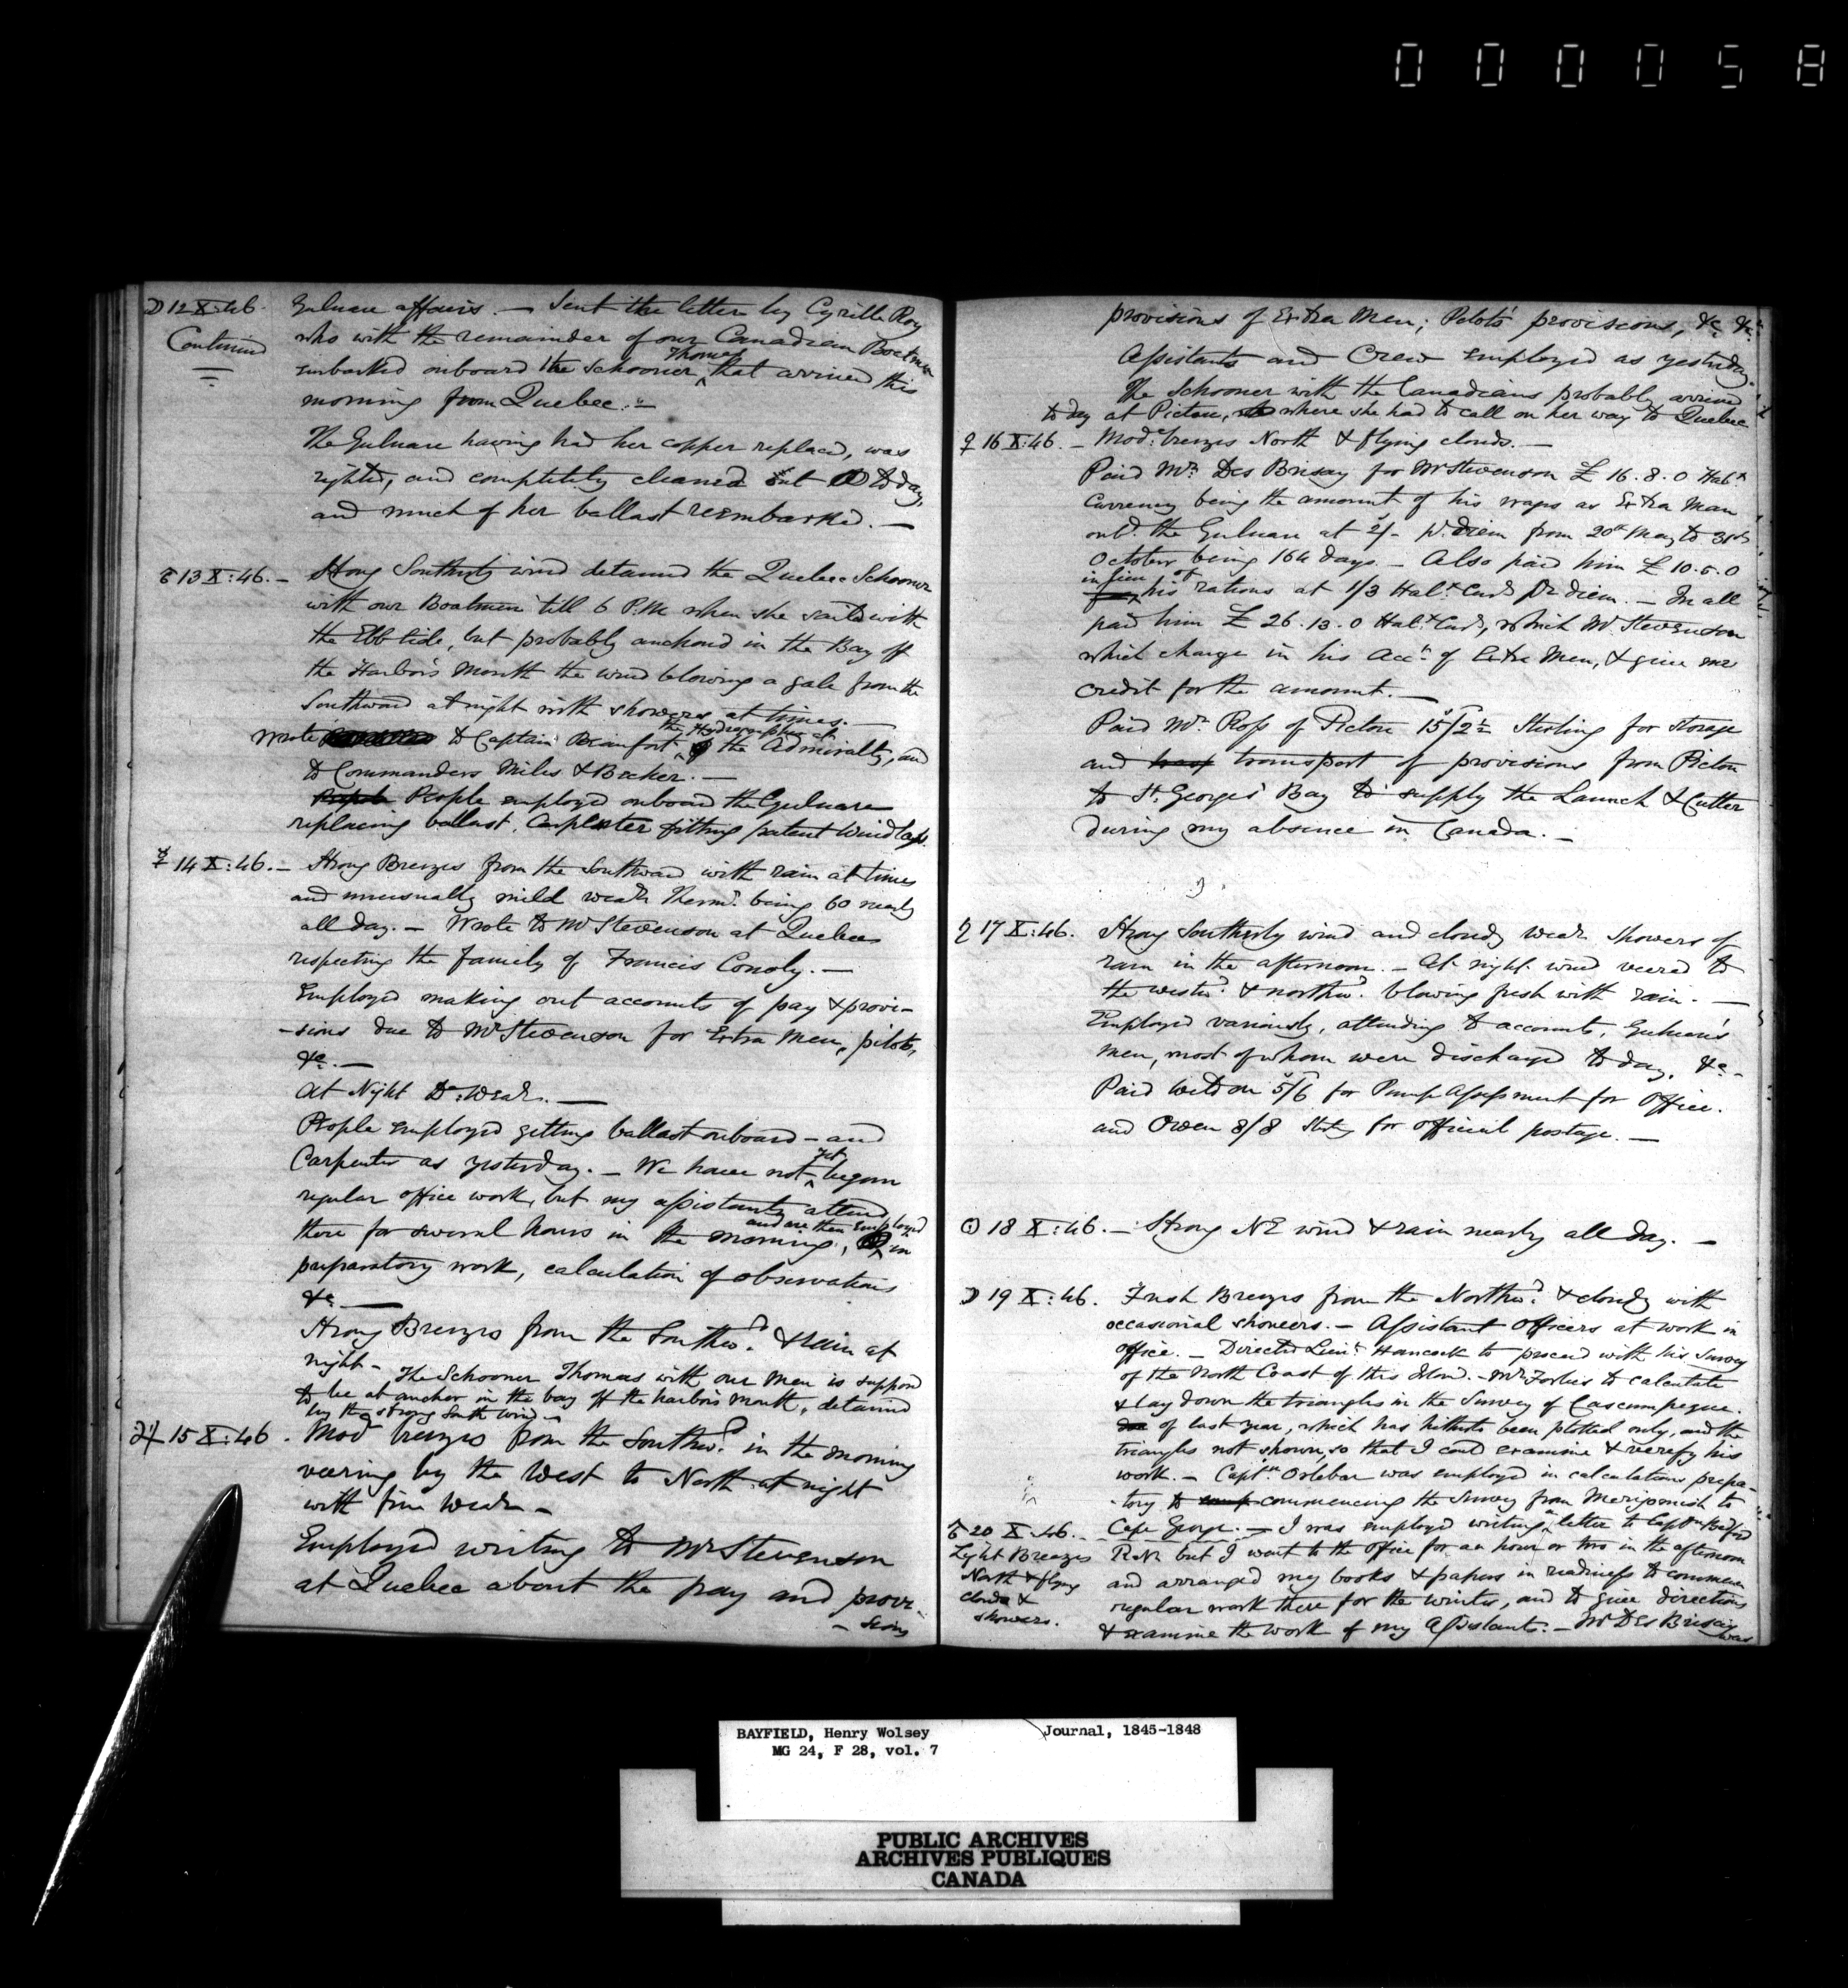 000058
☽ 12 X:46. Gulnare affairs. — Sent the letter by Cyrille Roy
Continued
who with the remainder of our Canadian Boatmen
embarked onboard the Schooner Thomas that arrived this
morning from Quebec. —
The Gulnare having had her copper replaced, was
righted, and completely cleaned out to day,
and much of her ballast reembarked. —
13 X:46. — Strong Southerly wind detained the Quebec Schooner
with our Boatmen till 6 P.M. when she sailed with
the Ebb tide, but probably anchored in the Bay off
the Harbor's Mouth the wind blowing a gale from the
Southward at night with showers at times. —
Wrote to Captain Beaufort the Hydrographer at the Admiralty, and
to Commanders Miles & Becher. —
People employed onboard the Gulnare
replacing ballast, Carpenter fitting patent Windlass.
☿ 14 X:46. — Strong Breezes from the Southward with rain at times
and unusually mild weath. Thermr. being 60 nearly
all day. — Wrote to Mr Stevenson at Quebec
respecting the family of Francis Conoly. —
Employed making out accounts of pay & provi-
-sions due to Mr Stevenson for Extra Men, pilots,
&c. —
At Night Do. Weath. —
People employed getting ballast onboard — and
Carpenter as yesterday. — We have not yet begun
regular office work, but my assistants attend
there for several hours in the morning, and are then employed in
preparatory work, calculation of observations
&c. —
Strong Breezes from the Southwd. & rain at
night — The Schooner Thomas with our Men is supposed
to be at anchor in the bay off the harbors mouth, detained
by the strong South wind —
♃ 15 X:46. Modr breezes from the Southwd. in the morning
veering by the West to North at night
with fine Weath —
Employed writing to Mr Stevenson
at Quebec about the pay and provi-
- sions
provisions of Extra Men; Pilots' provisions, &c &c.
Assistants and Crew employed as yesterday.
The Schooner with the Canadians probably arrived
to day at Pictou, where she had to call on her way to Quebec
♀ 16 X:46. — Modte. breezes North & flying clouds. —
Paid Mr. Des Brisay for Mr Stevenson £ 16.8.0 Halx
Currency being the amount of his wages as Extra Man
onbd. the Gulnare at 2/- pr. diem from 20th May to 31st
October being 164 days. — Also paid him £ 10.5.0
in lieu of his rations at 1/3 Halx Curcy Pr diem. — In all
paid him £ 26.13.0 Halx Curcy, which Mr Stevenson
which charge in his Acct. of Extra Men, & give me
credit for the amount. —
Paid Mr. Ross of Pictou 15/2½ Sterling for storage
and transport of provisions from Pictou
to St. Georges' Bay to supply the Launch & Cutter
during my absence in Canada. —
17 X:46. Strong Southerly wind and cloudy weath showers of
rain in the afternoon. — At night wind veered to
the westwd. & northwd. blowing fresh with rain. —
Employed variously, attending to accounts, Gulnare's
men, most of whom were discharged to day, &c —
Paid Weldon 5/6 for Pump Assessment for Office.
and Owen 8/8 Sterlg for official postage. —
☉ 18 X:46. — Strong NE wind & rain nearly all day. —
☽ 19 X:46. Fresh Breezes from the Northwd. & cloudy with
occasional showers. — Assistant Officers at work in
office. — Directed Lieut. Hancock to proceed with his Survey
of the North Coast of this Island. — Mr Forbes to calculate
& lay down the triangles in the Survey of Cascumpeque.
of last year, which has hitherto been plotted only, and the
triangles not shown, so that I could examine & verify his
work. — Captn. Orlebar was employed in calculations prepa-
-tory to commencing the Survey from Merigomish to
Cape George. — I was employed writing a letter to Captn Bedford
20 X:46. —
Light Breezes
North & flying
clouds &
showers.
R.N. but I went to the office for an hour or two in the afternoon
and arranged my books & papers in readiness to commence
regular work there for the winter, and to give directions
& examine the work of my Assistants. — Mr Des Brisay
was
BAYFIELD, Henry Wolsey Journal, 1845-1848
MG 24, F 28, vol. 7
PUBLIC ARCHIVES
ARCHIVES PUBLIQUES
CANADA